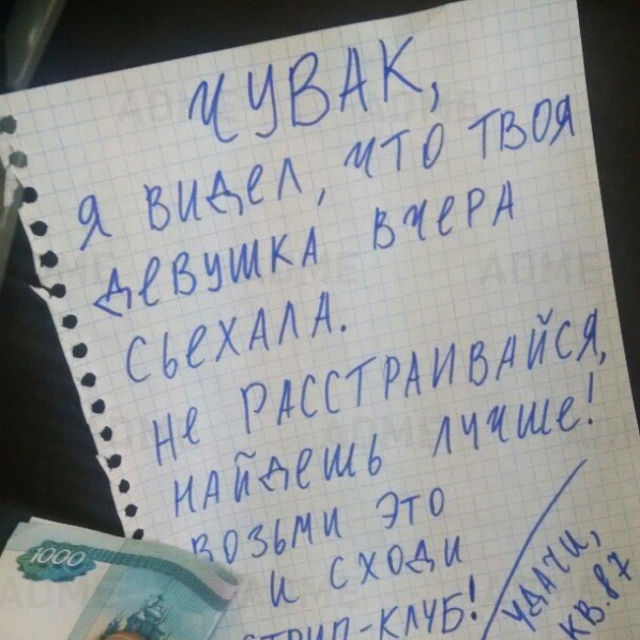 ЧУВАК,
Я ВИДЕЛ, ЧТО ТВОЯ
ДЕВУШКА ВЧЕРА
СЬЕХАЛА.
НЕ РАССТРАИВАЙСЯ,
НАЙДЕШЬ ЛУЧШЕ!
ВОЗЬМИ ЭТО
И СХОДИ
СТРИП-КЛУБ!
УДАЧИ,
КВ.87
1000
ADME